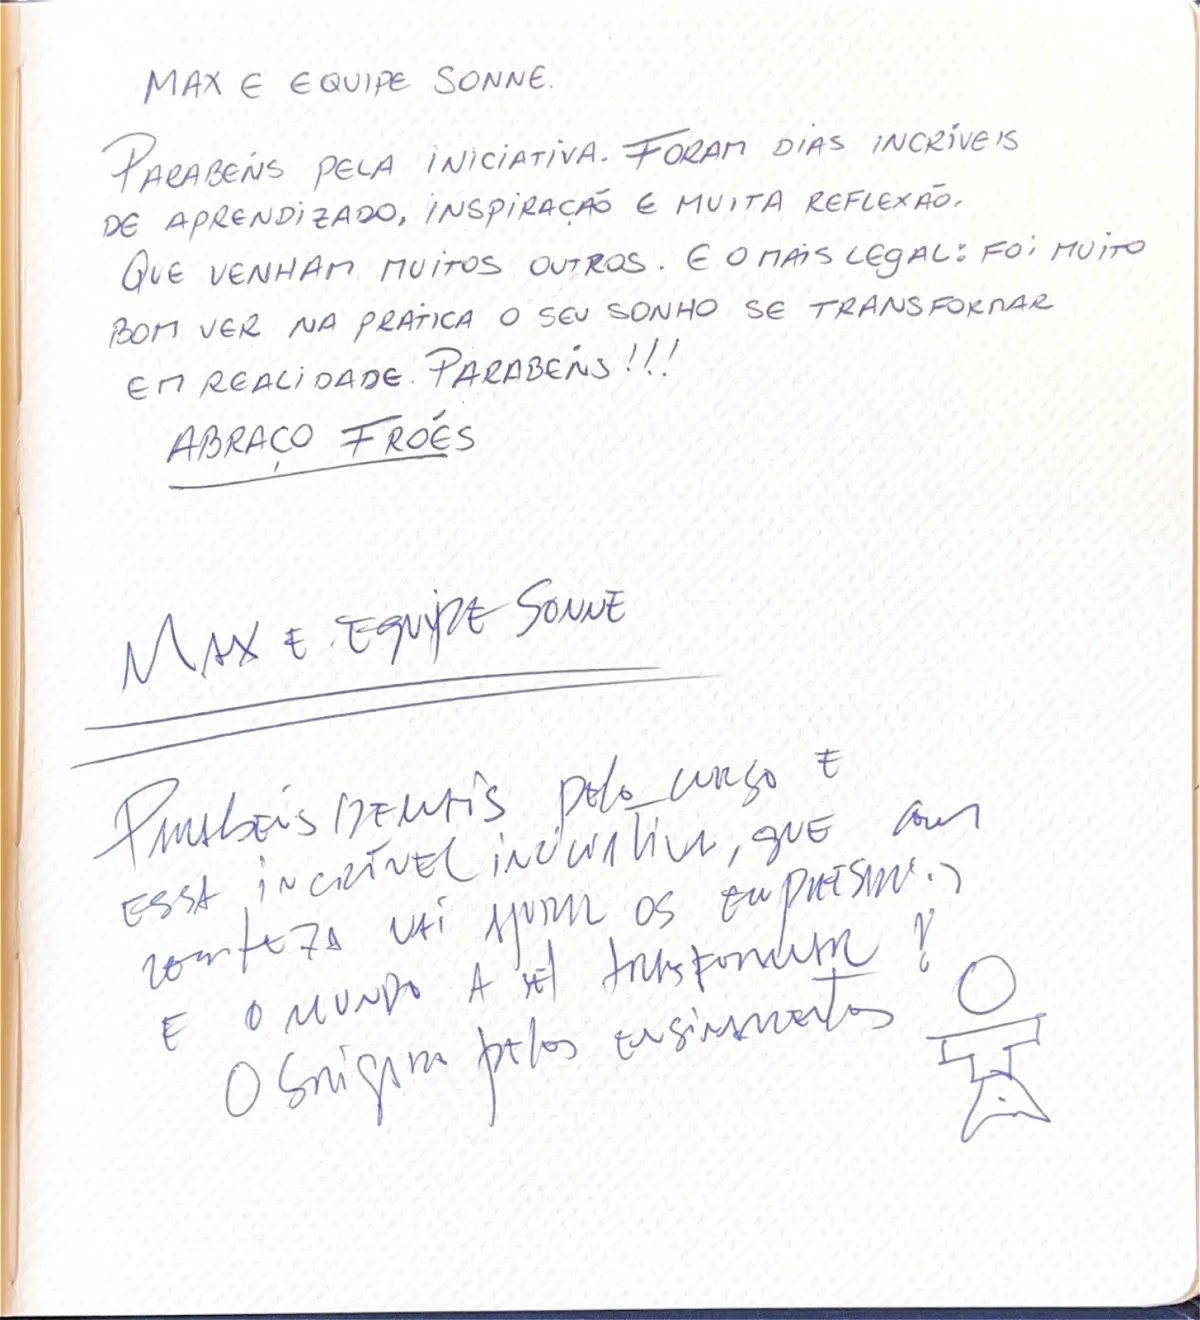 MAX E EQUIPE SONNE.
PARABÉNS PELA INICIATIVA. FORAM DIAS INCRÍVEIS
DE APRENDIZADO, INSPIRAÇÃO E MUITA REFLEXÃO.
QUE VENHAM MUITOS OUTROS. E O MAIS LEGAL: FOI MUITO
BOM VER NA PRÁTICA O SEU SONHO SE TRANSFORMAR
EM REALIDADE. PARABÉNS!!!
ABRAÇO FROÉS
MAX E EQUIPE SONNE
Parabéis pelo curso E
ESSA INCRÍVEL iniciativa, QUE com
certeza vai ajudar os
E O MUNDO A transformar
pelos ensinamentos